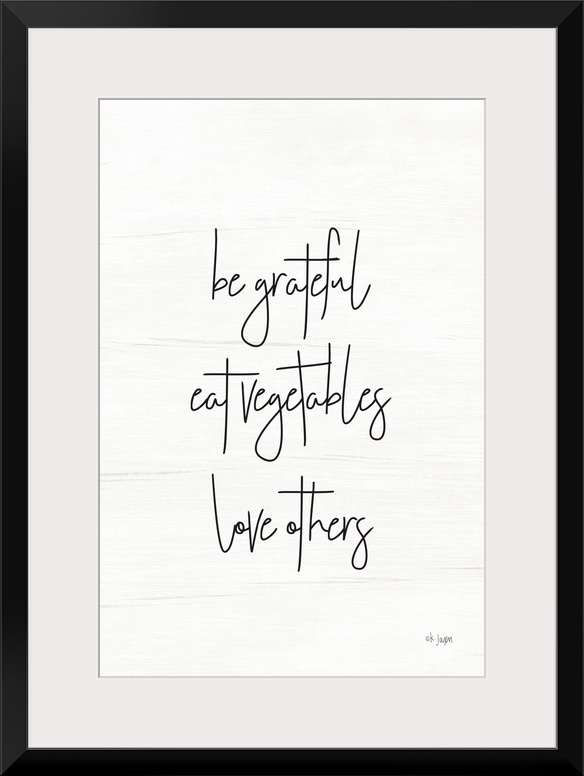 be grateful
eat vegetables
love others